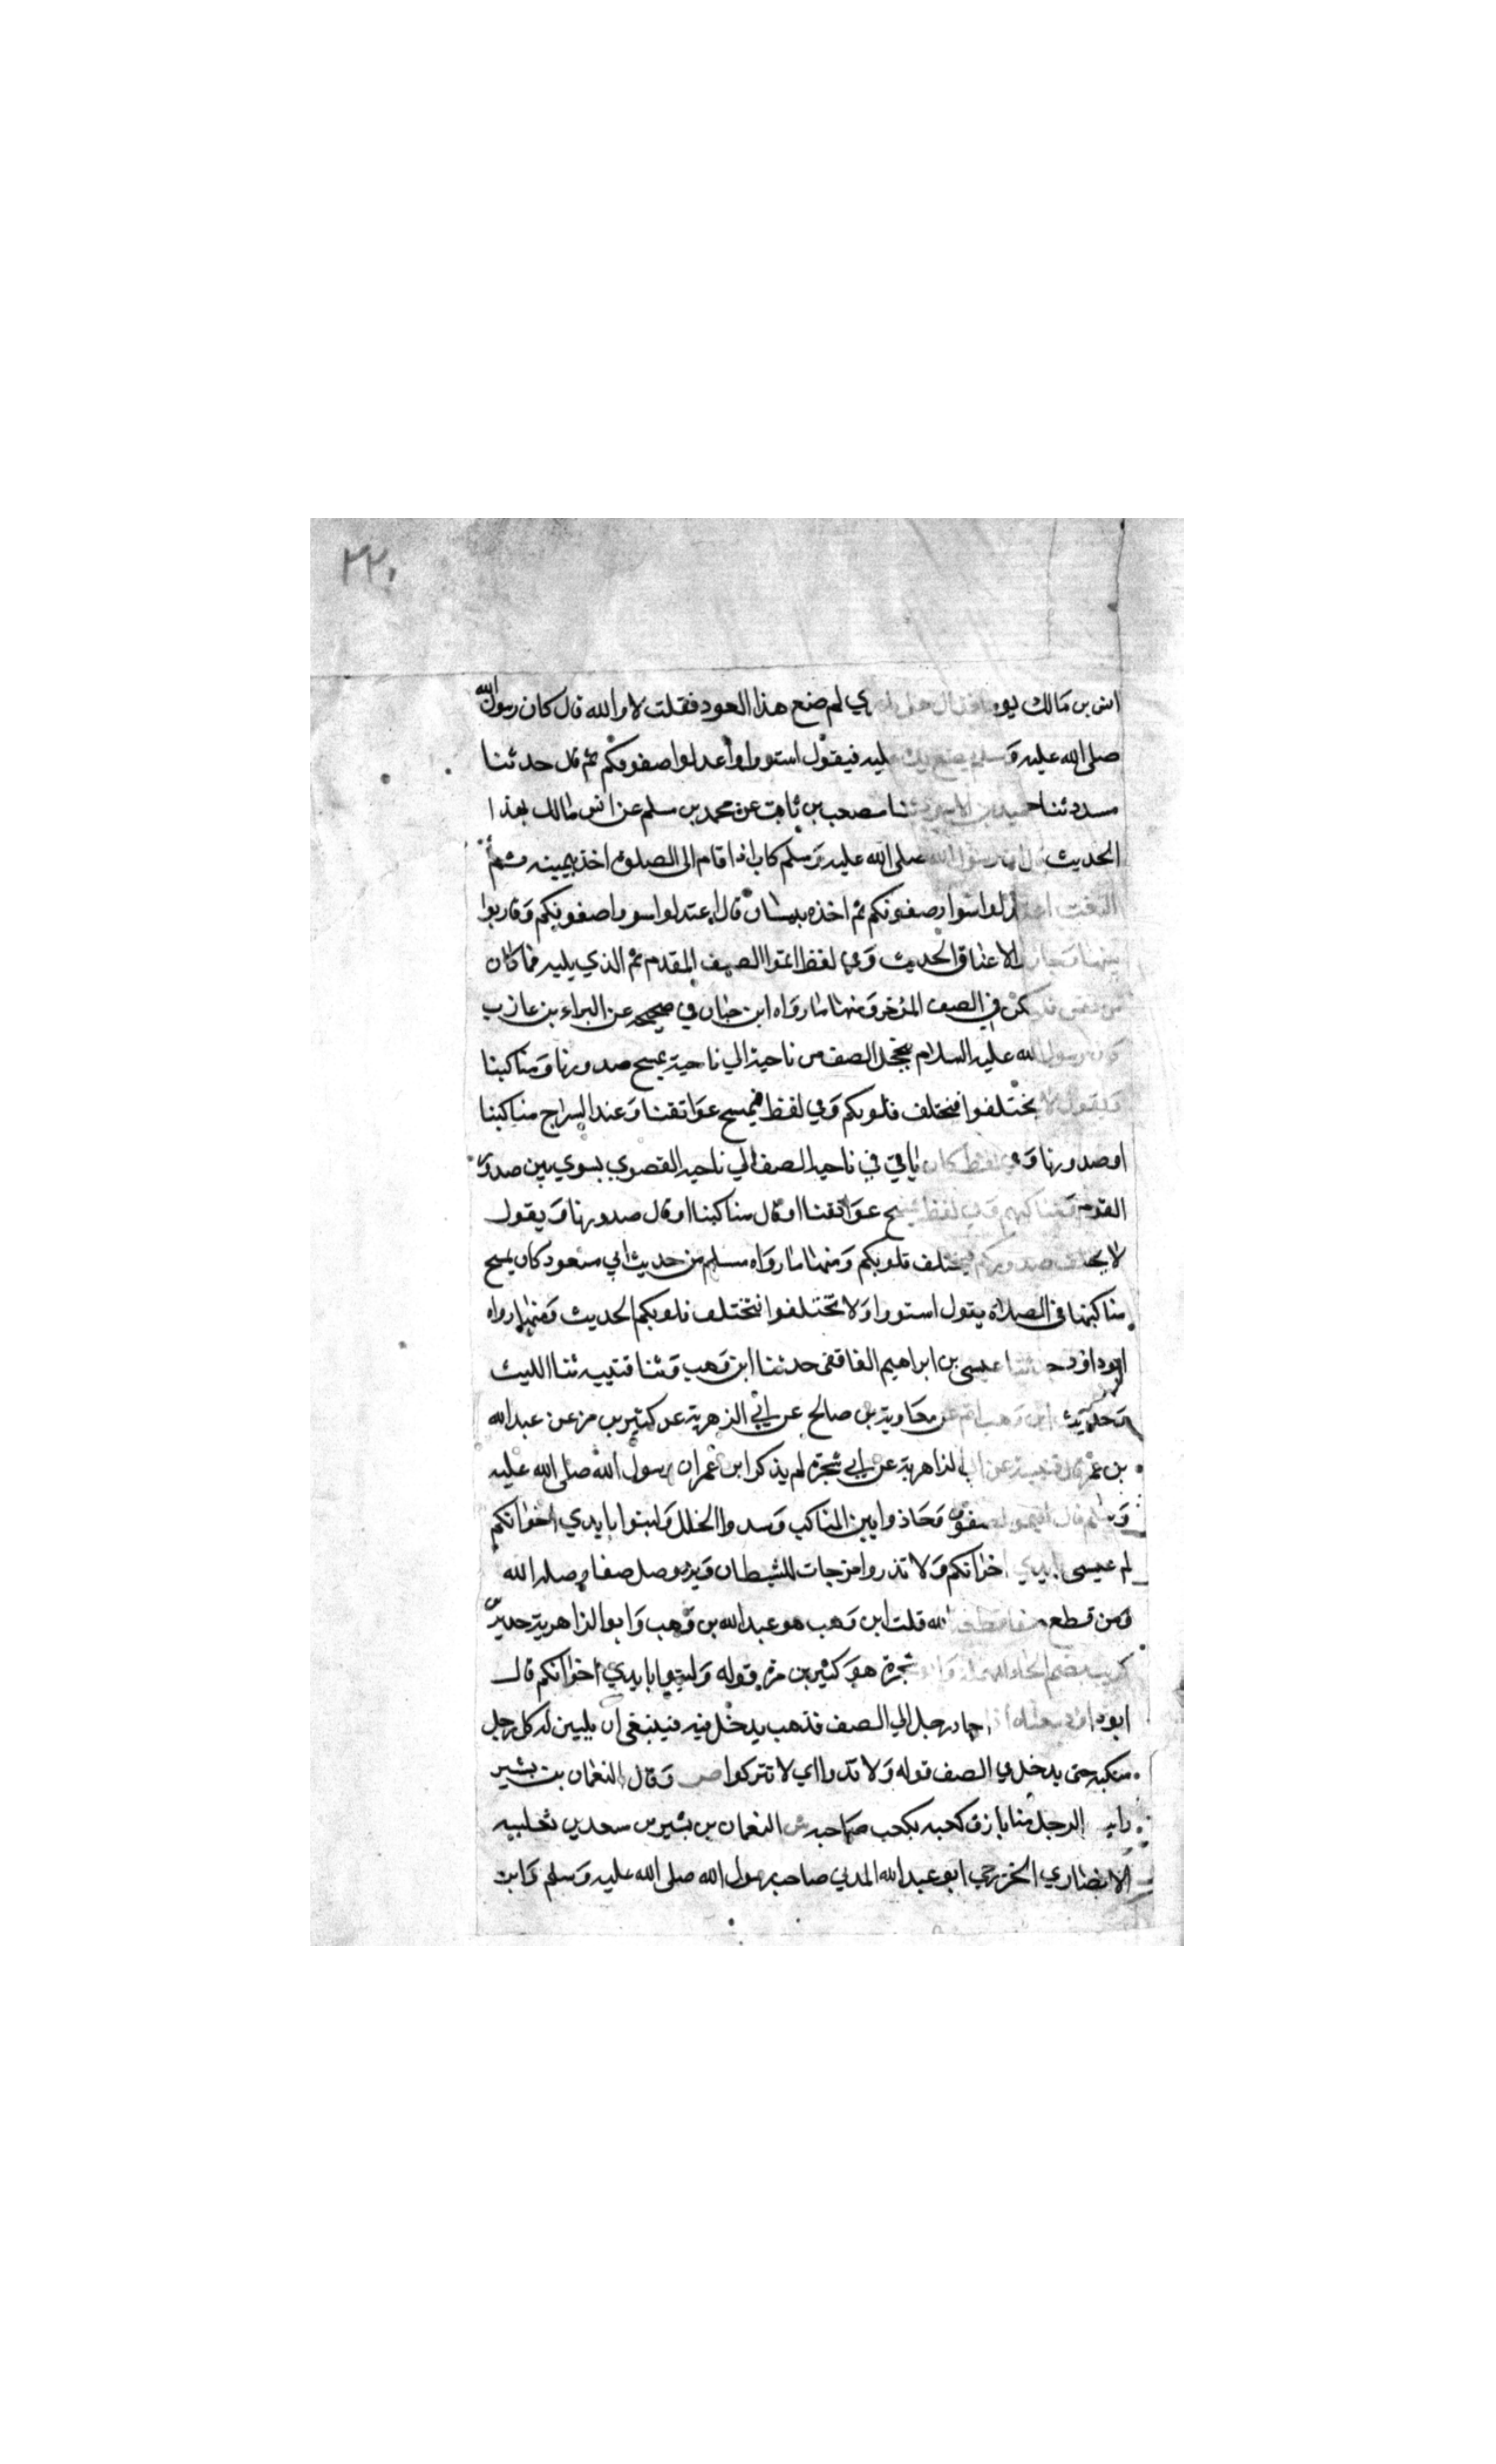 ٢٢٠
انس بن مالك يوما فقال هل تدري لم صنع هذا العود فقلت لا والله قال كان رسول الله
صلى الله عليه وسلم يضع يده عليه فيقول استووا واعدلوا صفوفكم ثم قال حدثنا
مسدد ثنا حميد بن الاسود ثنا مصعب بن ثابت عن محمد بن مسلم عن انس مالك بهذا
الحديث قال ان رسول الله صلى الله عليه وسلم كان اذا قام الى الصلوة اخذ بيمينه ثم
التفت اعتدلوا سووا صفوفكم ثم اخذه بيساره قال اعتدلوا سووا صفوفكم وقاربوا
بينها وحاذوا الاعناق الحديث وفي لفظ اتموا الصف المقدم ثم الذي يليه فما كان
من نقص فليكن في الصف المؤخر ومنها ما رواه ابن حبان في صحيحه عن البراء بن عازب
كان رسول الله عليه السلام يتخلل الصف من ناحية الي ناحية يمسح صدورنا ومناكبنا
ويقول لا تختلفوا فتختلف قلوبكم وفي لفظ فيمسح عواتقنا وعند السراج مناكبنا
او صدورنا وفي لفظ كان ياتي في ناحية الصف الي ناحيه القصوي يسوي بين صدور
القوم ومناكبهم وفي لفظ يمسح عواتقنا او قال مناكبنا او قال صدورنا ويقول
لا تختلف صدوركم فتختلف قلوبكم ومنها ما رواه مسلم من حديث ابي مسعود كان يمسح
مناكبنا في الصلاة يقول استووا ولا تختلفوا فتختلف قلوبكم الحديث ومنها ما رواه
ابو داود حدثنا عيسى بن ابراهيم الغافقى حدثنا ابن وهب وثنا قتيبه ثنا الليث
وحديث ابن وهب اتم عن معاوية بن صالح عن ابي الزهرية عن كثير بن مرة عن عبد الله
بن عمر قال قتيبة عن ابي الزاهرية عن ابي شجرة لم يذكر ابن عمر ان رسول الله صلى الله عليه
وسلم قال اقيموا الصفوف وحاذوا بين المناكب وسدوا الخلل ولينوا بايدي اخوانكم
لم عيسى بايدي اخوانكم ولا تذروا فرجات للشيطان ومن وصل صفا وصله الله
ومن قطع صفا قطعه الله قلت ابن وهب هو عبد الله بن وهب وابو الزاهرية حدير بن
كريب بضم الحاء المهملة وابو شجرة هو كثير بن مرة قوله ولينوا بايدي اخوانكم قال
ابو داود معناه اذا جاء رجل الي الصف فذهب يدخل فيه فينبغي ان يليين له كل رجل
منكبه حتى يدخل في الصف قوله ولا تذروا اي لا تتركوا ص وقال النعمان بن بشير
رايت الرجل منا يلزق كعبه بكعب صاحبه ش النعمان بن بشير بن سعد بن ثعلبه
الانصاري الخزرجي ابو عبد الله المدني صاحب رسول الله صلى الله عليه وسلم وابن